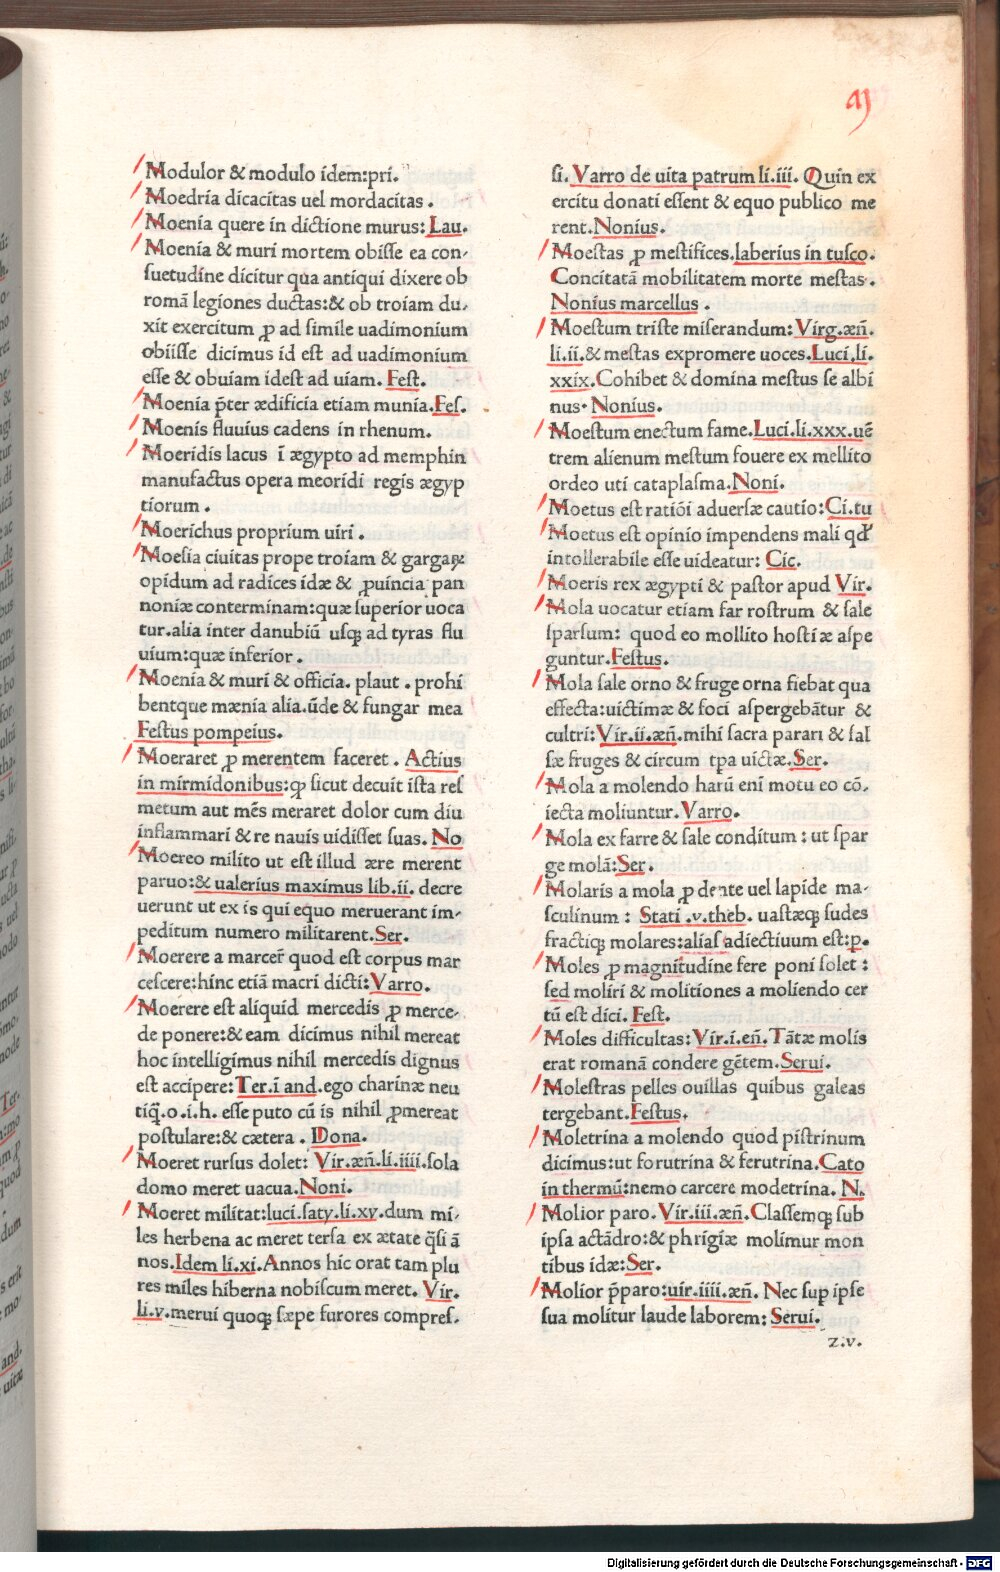 Modulor & modulo idem:pri.
Moedria dicacitas uel mordacitas .
Moenia quere in dictione murus: Lau.
Moenia & muri mortem obiſſe ea con-
ſuetudine dicitur qua antiqui dixere ob
romā legiones ductas:& ob troiam du-
xit exercitum ꝓ ad ſimile uadimonium
obiiſſe dicimus id eſt ad uadimonium
eſſe & obuiam ideſt ad uiam. Feſt.
Moenia p̄ter ædificia etiam munia.Feſ.
Moenis fluuius cadens in rhenum.
Moeridis lacus ī ægypto ad memphin
manufactus opera meoridi regis ægyp
tiorum .
Moerichus proprium uiri .
Moeſia ciuitas prope troiam & gargaꝝ
opidum ad radices idæ & ꝓuincia pan
noniæ conterminam:quæ ſuperior uoca
tur.alia inter danubiū uſqꝫ ad tyras flu
uium:quæ inferior .
Moenia & muri & officia. plaut . prohi
bentque mænia alia.ūde & fungar mea
Feſtus pompeius.
Moeraret ꝓ merentem faceret . Actius
in mirmidonibus:ꝙ ſicut decuit iſta reſ
metum aut mēs meraret dolor cum diu
inflammari & re nauis uidiſſet ſuas. No
Moereo milito ut eſt illud ære merent
paruo:& ualerius maximus lib.ii. decre
uerunt ut ex is qui equo meruerant im-
peditum numero militarent.Ser.
Moerere a marcer̄ quod eſt corpus mar
ceſcere:hinc etiā macri dicti:Varro.
Moerere eſt aliquid mercedis ꝓ merce-
de ponere:& eam dicimus nihil mereat
hoc intelligimus nihil mercedis dignus
eſt accipere: Ter.ī and.ego charinæ neu
tiq̄.o.i.h. eſſe puto cū is nihil ꝓmereat
poſtulare:& cætera . Dona.
Moeret rurſus dolet: Vir.æn̄.li.iiii.ſola
domo meret uacua.Noni.
Moeret militat:luci.ſaty.li.xv.dum mi-
les herbena ac meret terſa ex ætate q̄ſi ā
nos.Idem li.xi.Annos hic orat tam plu
res miles hiberna nobiſcum meret. Vir.
li.v.merui quoqꝫ ſæpe furores compreſ-
ſi. Varro de uita patrum li.iii. Quin ex
ercitu donati eſſent & equo publico me
rent.Nonius.
Moeſtas ꝓ meſtifices.laberius in tuſco.
Concitatā mobilitatem morte meſtas.
Nonius marcellus .
Moeſtum triſte miſerandum: Virg.æn̄.
li.ii.& meſtas expromere uoces.Luci.li.
xxix.Cohibet & domina meſtus ſe albi
nus. Nonius.
Moeſtum enectum fame.Luci.li.xxx.uē
trem alienum meſtum fouere ex mellito
ordeo uti cataplaſma.Noni.
Moetus eſt ratiōi aduerſæ cautio:Ci.tu
Moetus eſt opinio impendens mali qđ
intollerabile eſſe uideatur: Cic.
Moeris rex ægypti & paſtor apud Vir.
Mola uocatur etiam far roſtrum & ſale
ſparſum: quod eo mollito hoſtiæ aſpe
guntur.Feſtus.
Mola ſale orno & fruge orna fiebat qua
effecta:uictimæ & foci aſpergebātur &
cultri:Vir.ii.æn̄.mihi ſacra parari & ſal
ſæ fruges & circum tꝑa uictæ.Ser.
Mola a molendo harū eni motu eo cō-
iecta moliuntur. Varro.
Mola ex farre & ſale conditum : ut ſpar
ge molā:Ser.
Molaris a mola ꝓ dente uel lapide ma-
ſculinum : Stati .v.theb. uaſtæqꝫ ſudes
fractiqꝫ molares:aliaſ adiectiuum eſt:p.
Moles ꝓ magnitudine fere poni ſolet :
ſed moliri & molitiones a moliendo cer
tū eſt dici. Feſt.
Moles difficultas: Vir.i.en̄. Tātæ molis
erat romanā condere gētem.Serui.
Moleſtras pelles ouillas quibus galeas
tergebant.Feſtus.
Moletrina a molendo quod piſtrinum
dicimus:ut forutrina & ferutrina.Cato
in thermū:nemo carcere modetrina. N.
Molior paro. Vir.iii.æn̄.Claſſemqꝫ ſub
ipſa actādro:& phrigiæ molimur mon
tibus idæ:Ser.
Molior p̄paro:uir.iiii.æn̄. Nec ſup ipſe
ſua molitur laude laborem: Serui.
z.v.
Digitalisierung gefördert durch die Deutsche Forschungsgemeinschaft - DFG